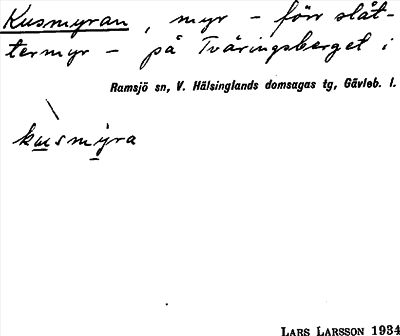 Kusmyran, myr - förr slåt-
termyr - på Tväringsberget i
Ramsjö sn, V. Hälsinglands domsagas tg, Gävleb. l.
kusmyra
LARS LARSSON 1934